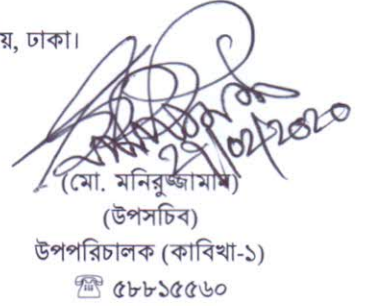 য়, ঢাকা।
২৭/০২/২০২০
(মো. মনিরুজ্জামান)
(উপসচিব)
উপপরিচালক (কাবিখা-১)
☎ ৫৮৮১৫৫৬০